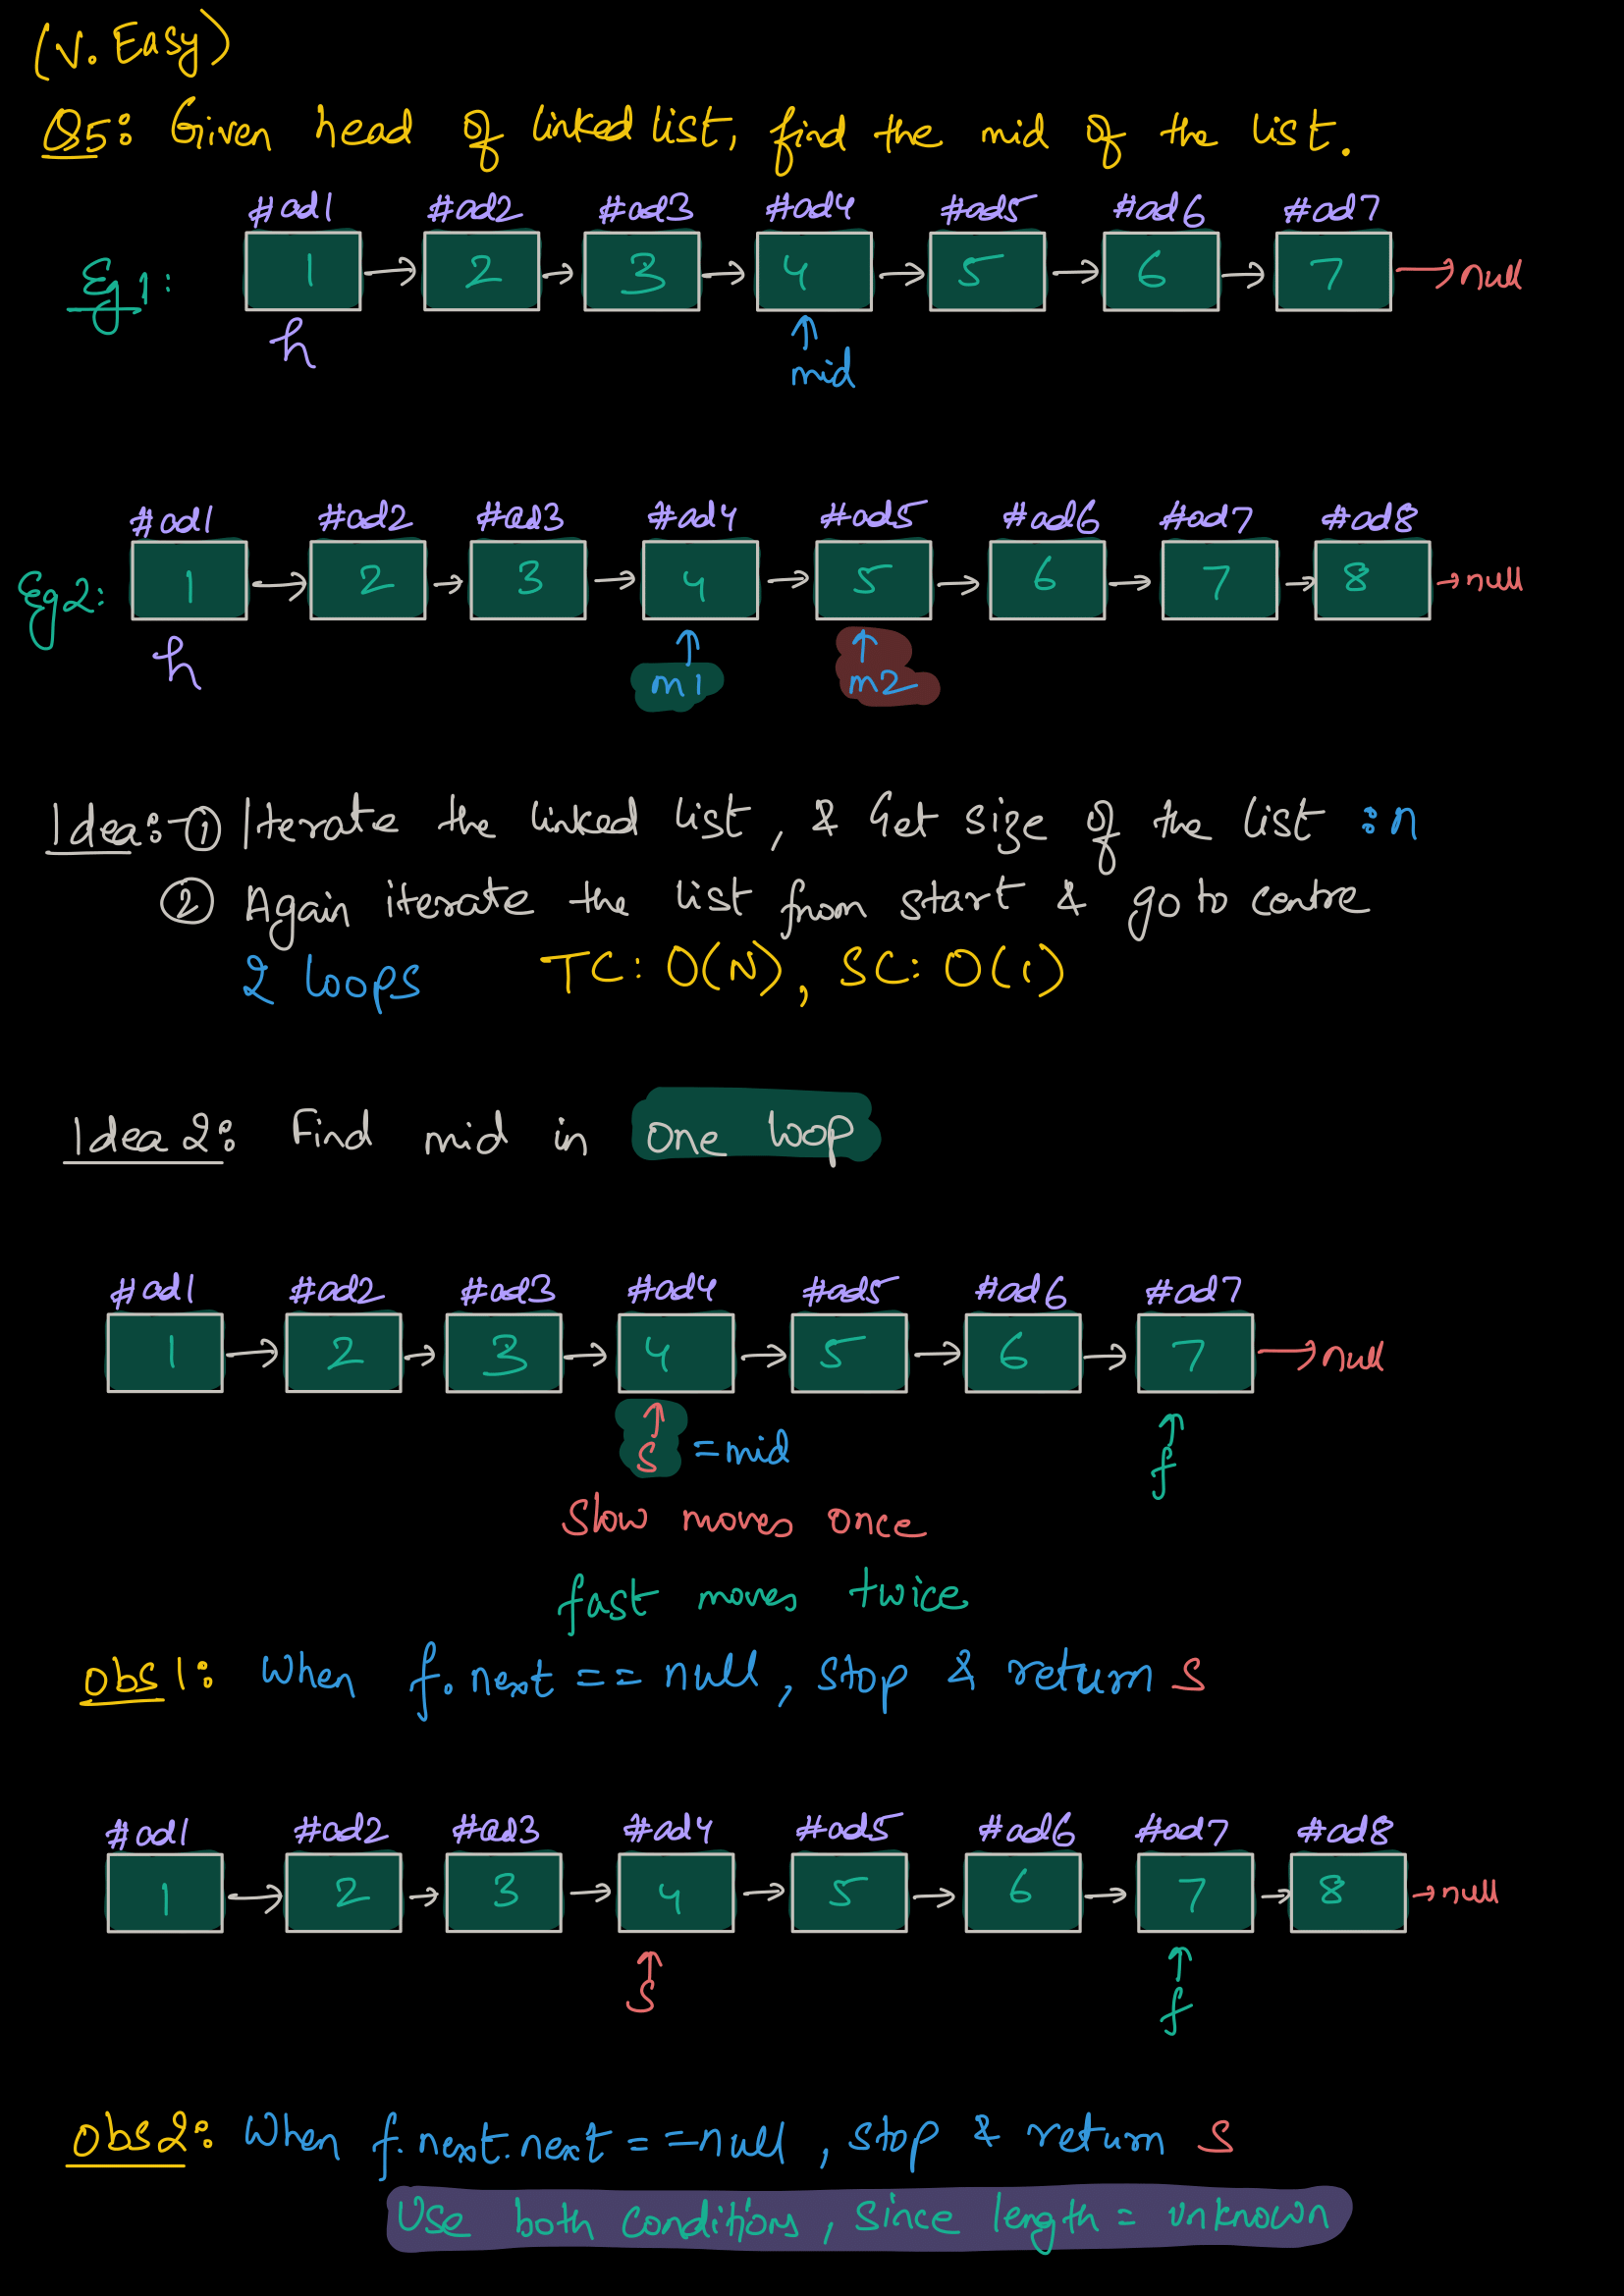 (V. Easy)
Q5: Given head of linked list, find the mid of the list.
#ad1 #ad2 #ad3 #ad4 #ad5 #ad6 #ad7
Eg1: 1 → 2 → 3 → 4 → 5 → 6 → 7 → null
h ↑
mid
#ad1 #ad2 #ad3 #ad4 #ad5 #ad6 #ad7 #ad8
Eg2: 1 → 2 → 3 → 4 → 5 → 6 → 7 → 8 → null
h ↑ ↑
m1 m2
Idea:- ① Iterate the linked list, & Get size of the list : n
② Again iterate the list from start & go to centre
2 loops TC: O(N), SC: O(1)
Idea 2: Find mid in one loop
#ad1 #ad2 #ad3 #ad4 #ad5 #ad6 #ad7
1 → 2 → 3 → 4 → 5 → 6 → 7 → null
↑ ↑
s = mid f
Slow moves once
fast moves twice
obs1: When f.next == null, stop & return s
#ad1 #ad2 #ad3 #ad4 #ad5 #ad6 #ad7 #ad8
1 → 2 → 3 → 4 → 5 → 6 → 7 → 8 → null
↑ ↑
s f
obs2: When f.next.next == null, stop & return s
Use both conditions, since length = unknown